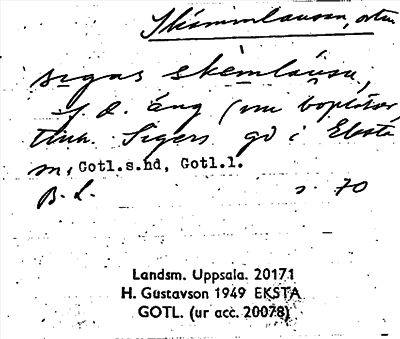 Skämmlausan, ortn
sigas skèmlåusu,
f. d. äng (nu
Sigers gd i Eksta
sn, Gotl.s.hd, Gotl.l.
B. L. s. 70
Landsm. Uppsala. 20171
H. Gustavson 1949 EKSTA
GOTL. (ur acc. 20078)